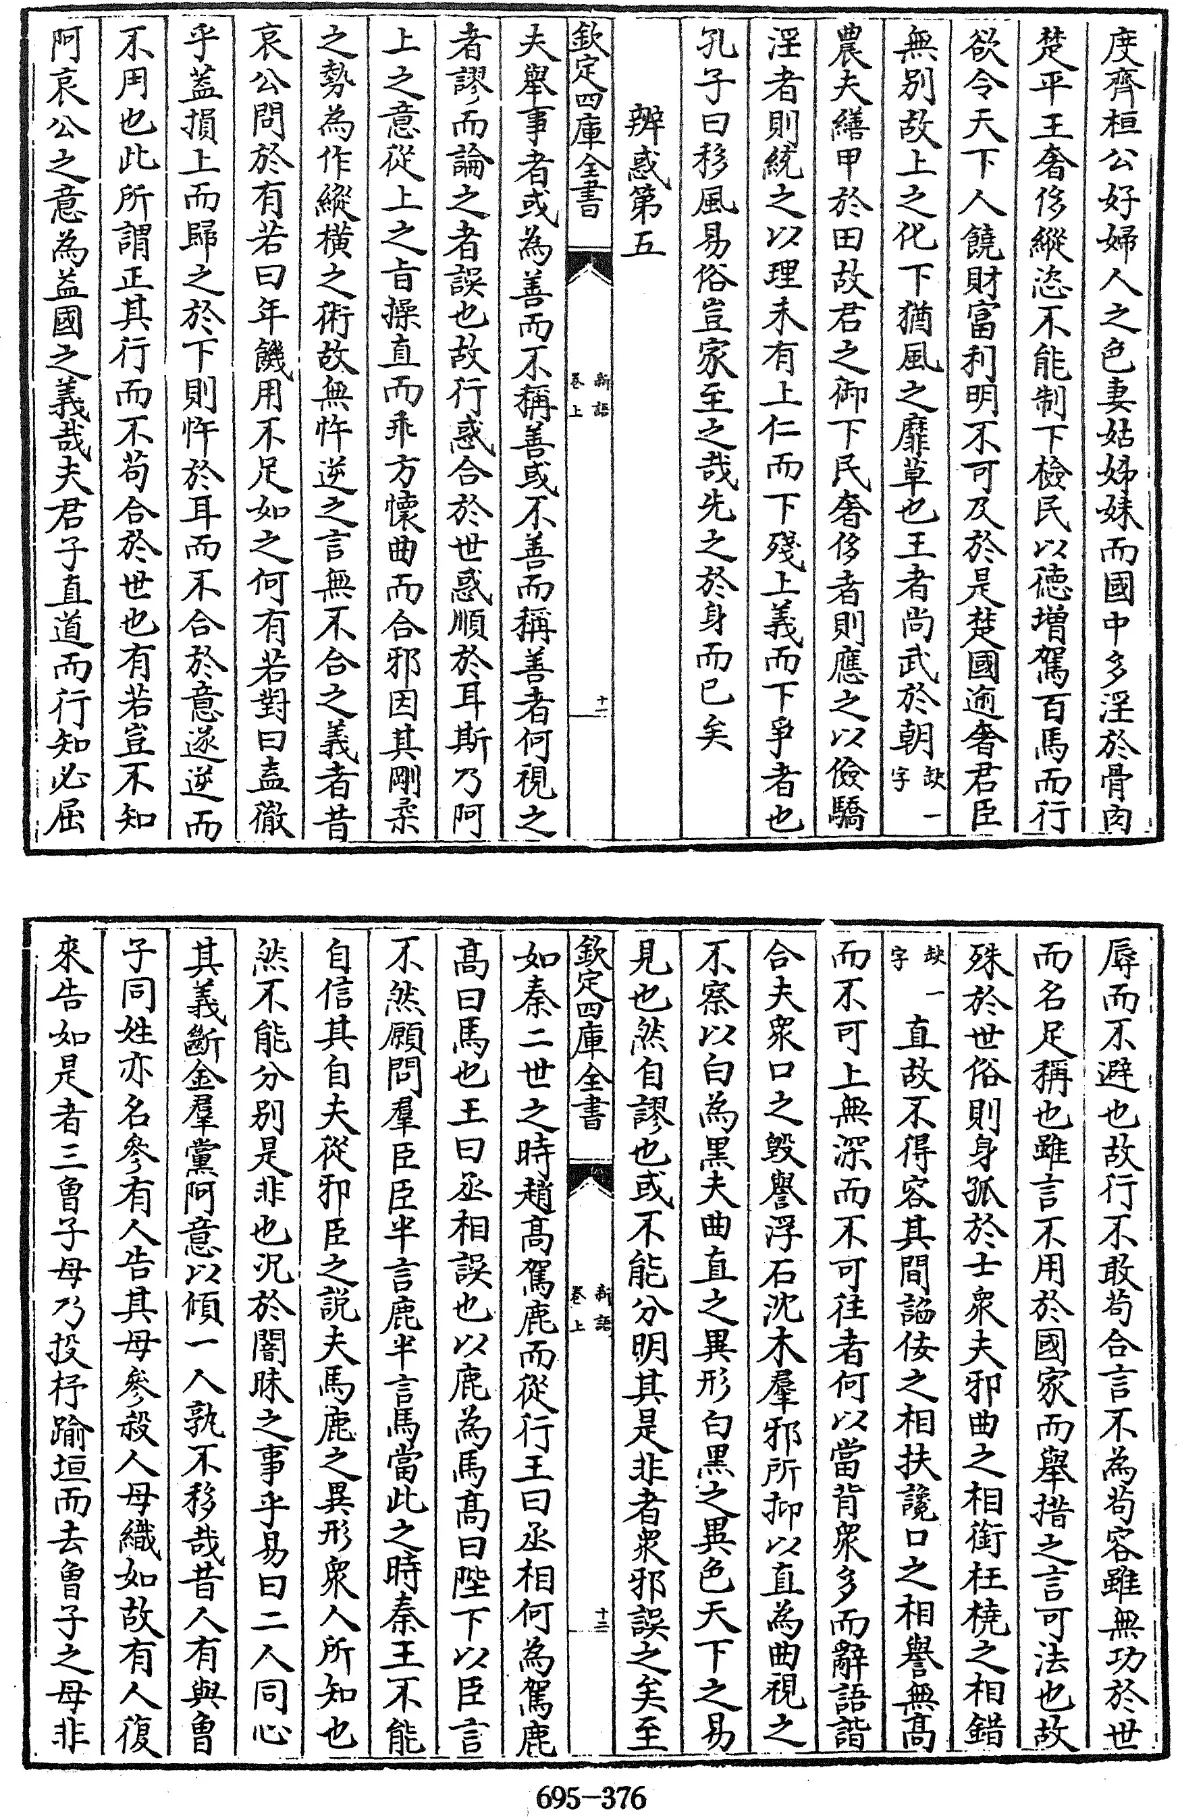 度齊桓公好婦人之色妻姑姊妹而國中多淫於骨肉
楚平王奢侈縱恣不能制下檢民以德增駕百馬而行
欲令天下人饒財富利明不可及於是楚國逾奢君臣
無別故上之化下猶風之靡草也王者尚武於朝缺一字
農夫繕甲於田故君之御下民奢侈者則應之以儉驕
淫者則統之以理未有上仁而下殘上義而下爭者也
孔子曰移風易俗豈家至之哉先之於身而已矣
辨惑第五
欽定四庫全書
新語
卷上
十二
夫舉事者或為善而不稱善或不善而稱善者何視之
者謬而論之者誤也故行惑合於世惑順於耳斯乃阿
上之意從上之旨操直而乖方懷曲而合邪因其剛柔
之勢為作縱橫之術故無忤逆之言無不合之義者昔
哀公問於有若曰年饑用不足如之何有若對曰盍徹
乎蓋損上而歸之於下則忤於耳而不合於意遂逆而
不用也此所謂正其行而不茍合於世也有若豈不知
阿哀公之意為益國之義哉夫君子直道而行知必屈
辱而不避也故行不敢茍合言不為茍容雖無功於世
而名足稱也雖言不用於國家而舉措之言可法也故
殊於世俗則身孤於士衆夫邪曲之相銜枉橈之相錯
缺一字直故不得容其間諂佞之相扶讒口之相譽無高
而不可上無深而不可往者何以當背衆多而辭語諧
合夫衆口之毀譽浮石沈木羣邪所抑以直為曲視之
不察以白為黑夫曲直之異形白黑之異色天下之易
見也然自謬也或不能分明其是非者衆邪誤之矣至
欽定四庫全書
新語
卷上
十三
如秦二世之時趙高駕鹿而從行王曰丞相何為駕鹿
高曰馬也王曰丞相誤也以鹿為馬高曰陛下以臣言
不然願問羣臣臣半言鹿半言馬當此之時秦王不能
自信其自夫從邪臣之說夫馬鹿之異形衆人所知也
然不能分別是非也況於闇昧之事乎易曰二人同心
其義斷金羣黨阿意以傾一人孰不移哉昔人有與曾
子同姓亦名參有人告其母參殺人母織如故有人復
來告如是者三曾子母乃投杼踰垣而去曾子之母非
695-376